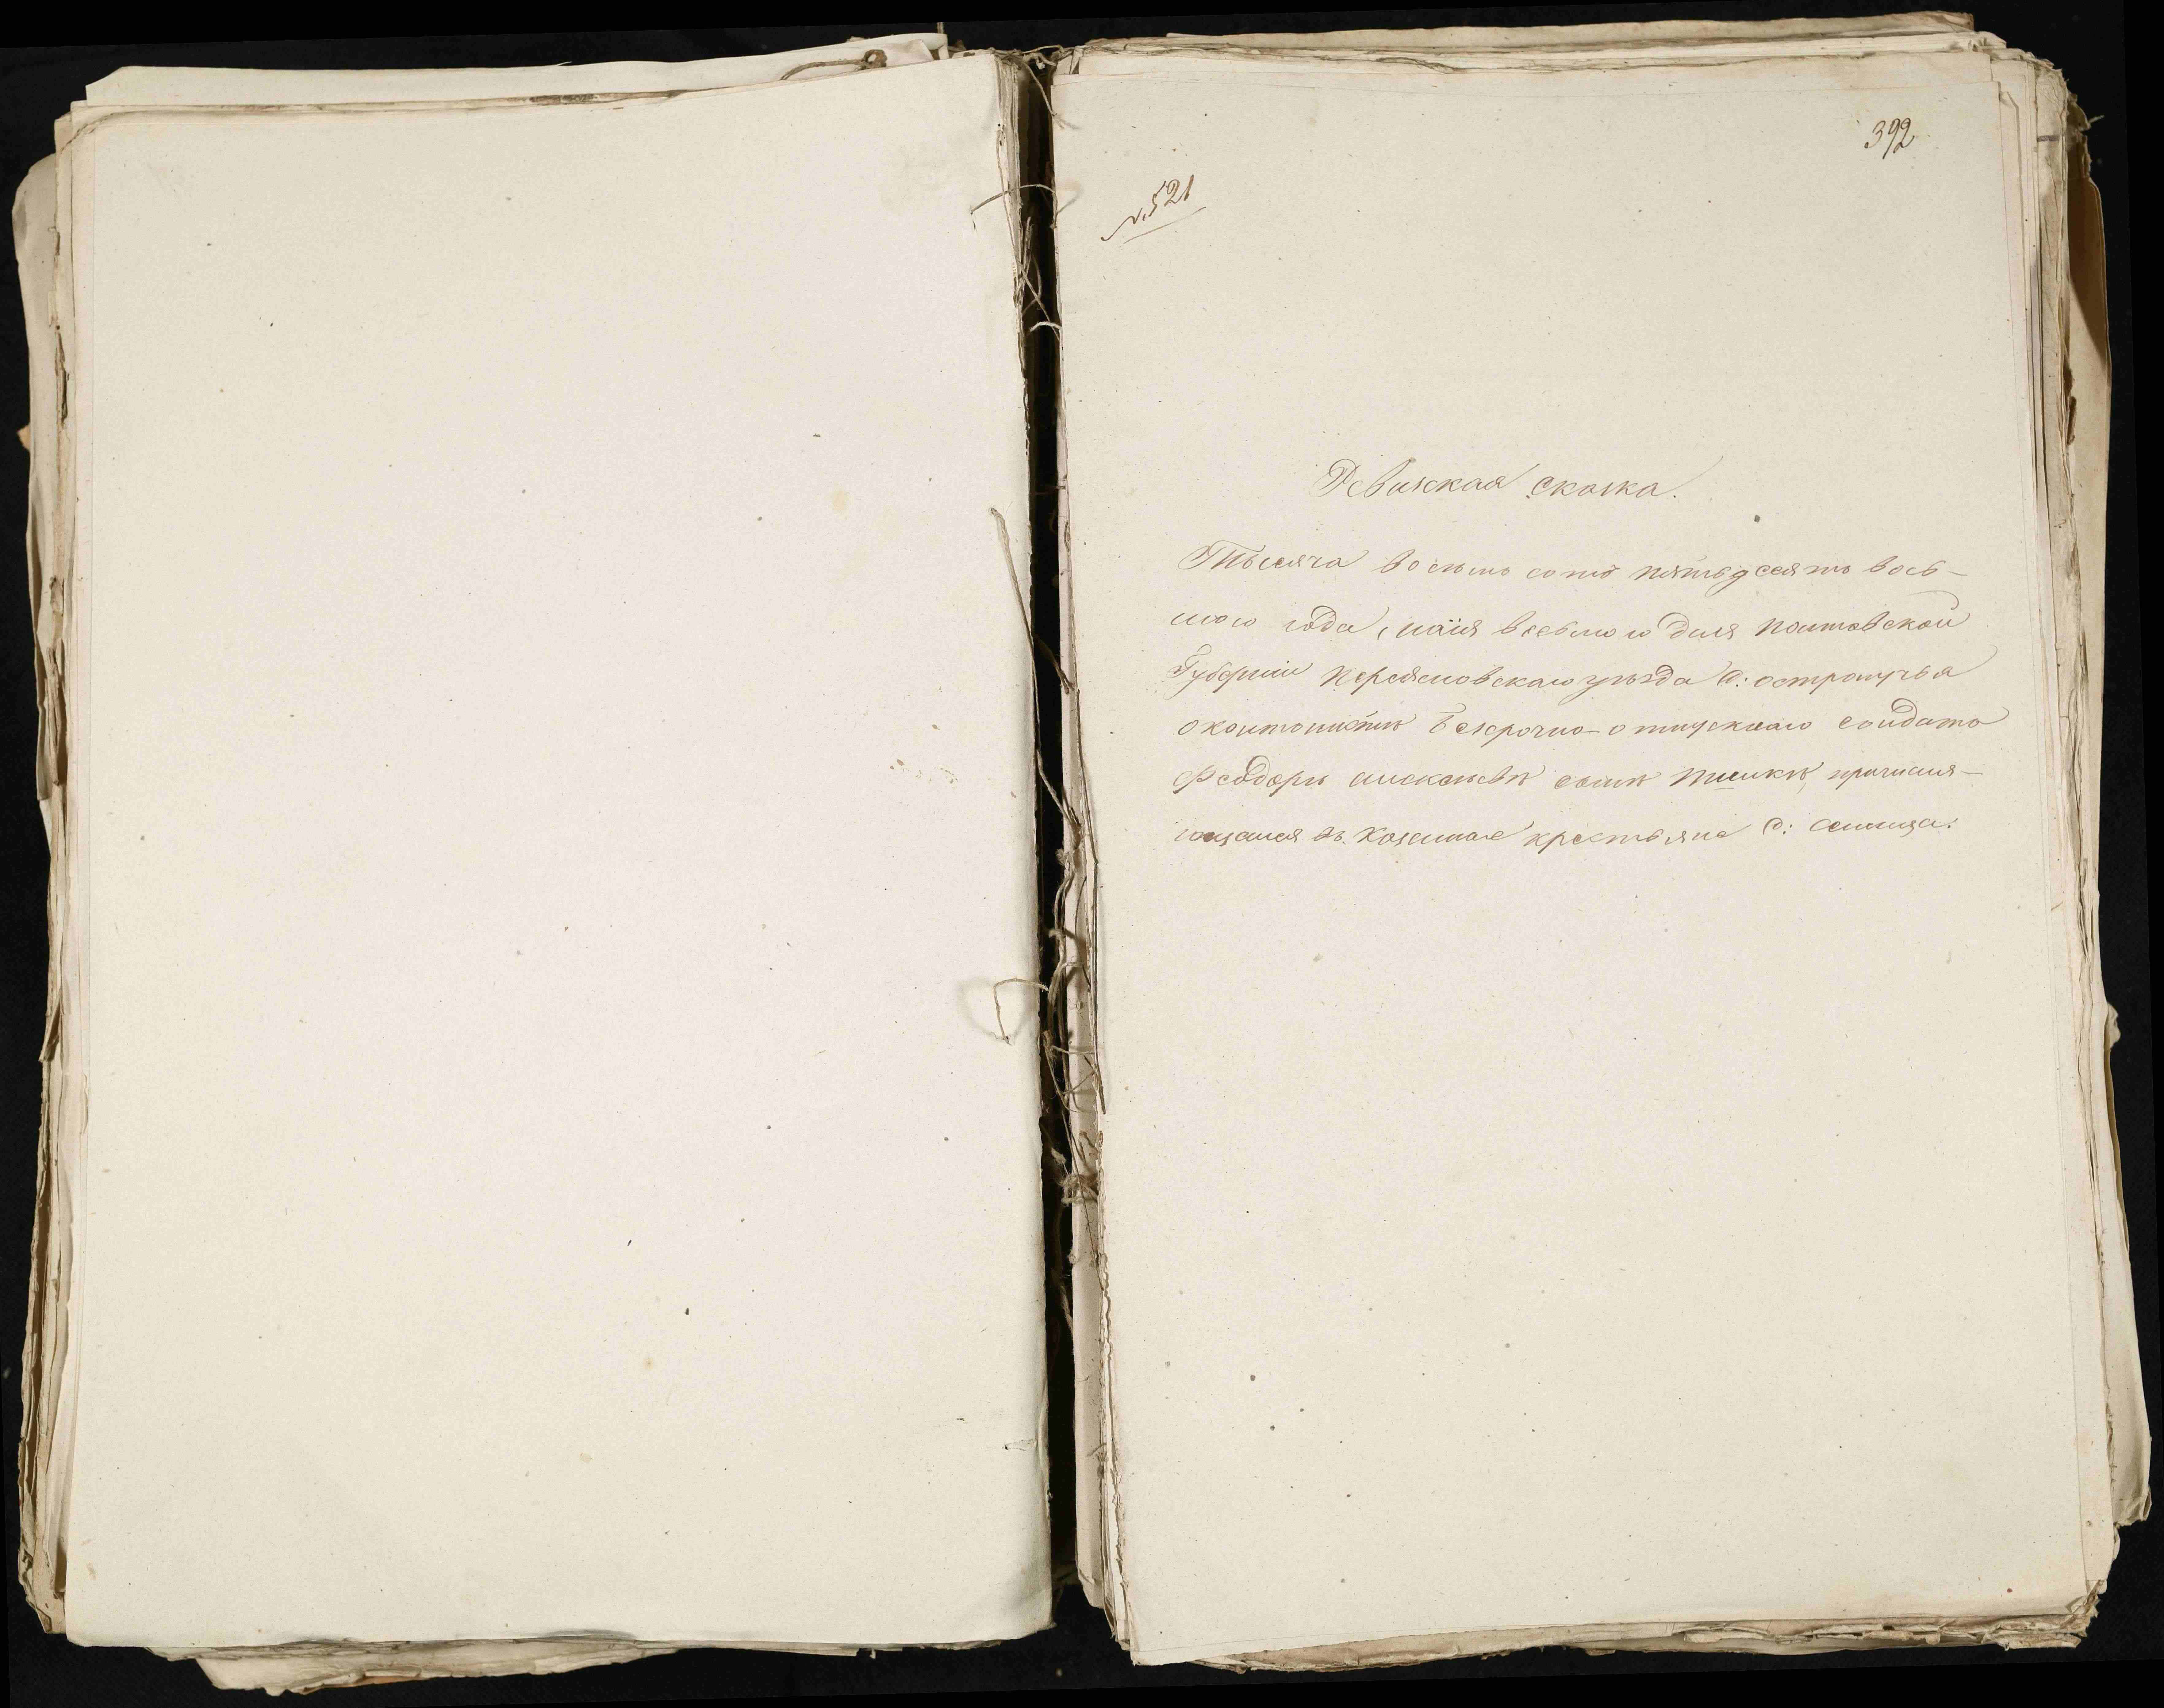 392
№ 521
Ревизская сказка.
Тысяча восемь сотъ пятьдесятъ вось-
мого года, маія восьмого дня Полтавской
Губерніи Переясловскаго уѣзда д:
о кантонистѣ безсрочно-отпускнаго солдата
Феодорѣ Алексѣевѣ сынѣ причисля-
ющемся въ казенные крестьяне д: